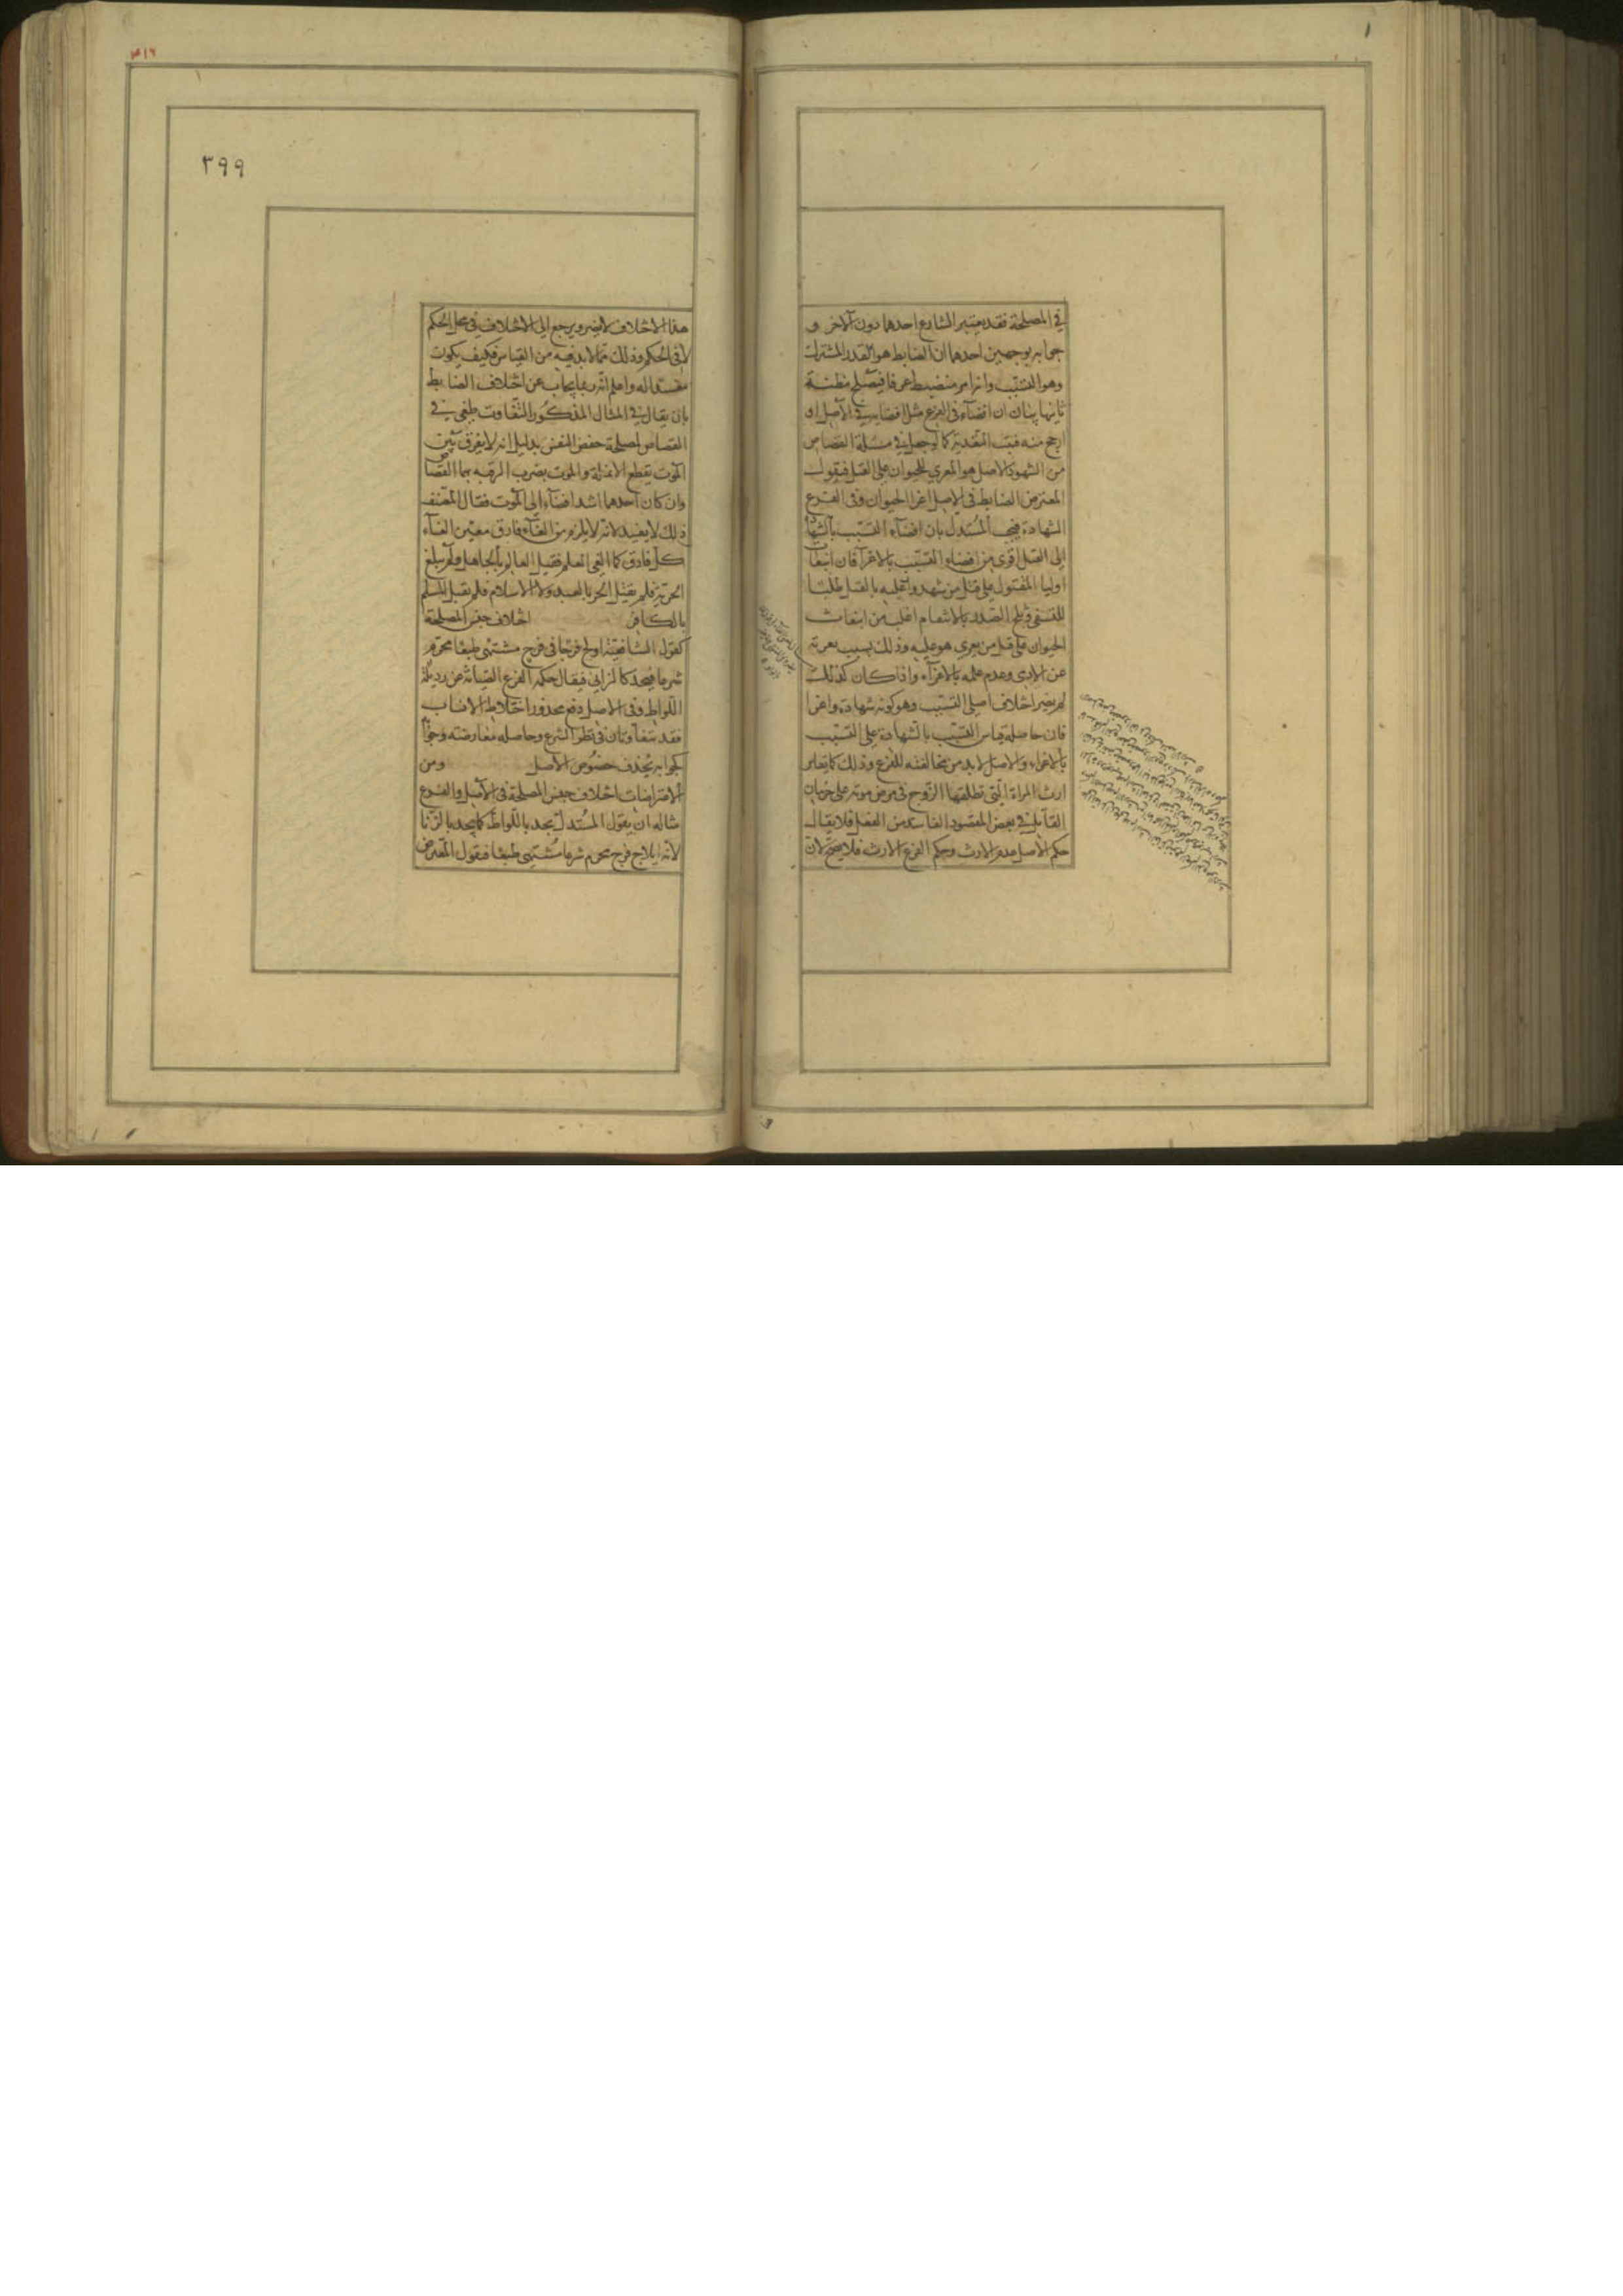 في المصلحة فقد يعتبر الشارع احدهما دون الآخر و
جوابه بوجهين احدهما ان الضابط هو القدر المشترك
وهو التسبّب وانه امر منضبط عرفا فيصلح مظنة
ثانيها بيان ان افضاءه في الفرع مثل افضايه في الاصل او
ارجح منه فيثبت التعدية كما لو جعل في مسئلة القصاص
من الشهود الاصل هو المغري للحيوان على القتل فيقول
المعترض الضابط في الاصل اغرا الحيوان وفي الفرع
الشهادة فيجيب المُستدل بان افضاء التسبّب بالشهادة
الى القتل اقوى من افضاء التسبّب بالاغرآ فان انبعاث
اوليا المقتول على قتل من شهدوا عليه بالقتل طلبا
للتشفي وثلج الصدر بالانتقام اغلب من انبعاث
الحيوان على قتل من يغري هو عليه وذلك بسبب نفرته
عن الادمي وعدم علمه بالاغرآء واذا كان كذلك
لم يضر اختلاف اصلي التسبّب وهو كونه شهادة واغرا
فان حاصله قياس التسبّب بالشهادة على التسبّب
بالاغراء والاصل لا بد من مخالفته للفرع وذلك كما يقاس
ارث المراة التي تطلقها الزوج في مرض موته على حرمان
القاتل في نقض المقصود الفاسد من الفعل فلا يقال
حكم الاصل عدم الارث وحكم الفرع الارث فلا يصحّ لان
٣٩٩
٣١٦
هذا الاختلاف لا يضر ويرجع الى الاختلاف في محل الحكم
لا في الحكم وذلك مما لا بد فيه من القياس فكيف يكون
مفسدا له واعلم انه ربما يجاب عن اختلاف الضابط
بان يقال في المثال المذكور التفاوت طفي في
القصاص لمصلحة حفض النفس بدليل انه لا يفرق بين
الموت بقطع الانملة والموت بضرب الرقبه بهما القصاص
وان كان احدهما اشد افضاء الى الموت فقال المصّنف
ذلك لا يفيد لانه لا يلزم من الغآء فارق معين الغآء
كل فارق كما الغي العلم فقيل العالم بالجاهل ولم يبلغ
الحرية فلم يقتل الحر بالعبد ولا الاسلام فلم يقبل المسلم
بالكافر اختلاف جنس المصلحة
كقول الشافعية اولج فرجا في فرج مشتهى طبعا محرم
شرعا فيحد كالزاني فيقال حكمة الفرع الصيانة عن رذيلة
اللواط وفي الاصل دفع محذور اختلاط الانساب
فقد يتفاوتان في نظر الشرع وحاصله معارضته وجوابه
كجوابه بحذف خصُوص الاصل ومن
الاعتراضات اختلاف جنس المصلحة في الاصل والفرع
مثاله ان يقول المُستدل يحد باللواط كما يحد بالزنا
لانه ايلاج فرج محرم شرعا مُشتهى طبعا فيقول المعترض